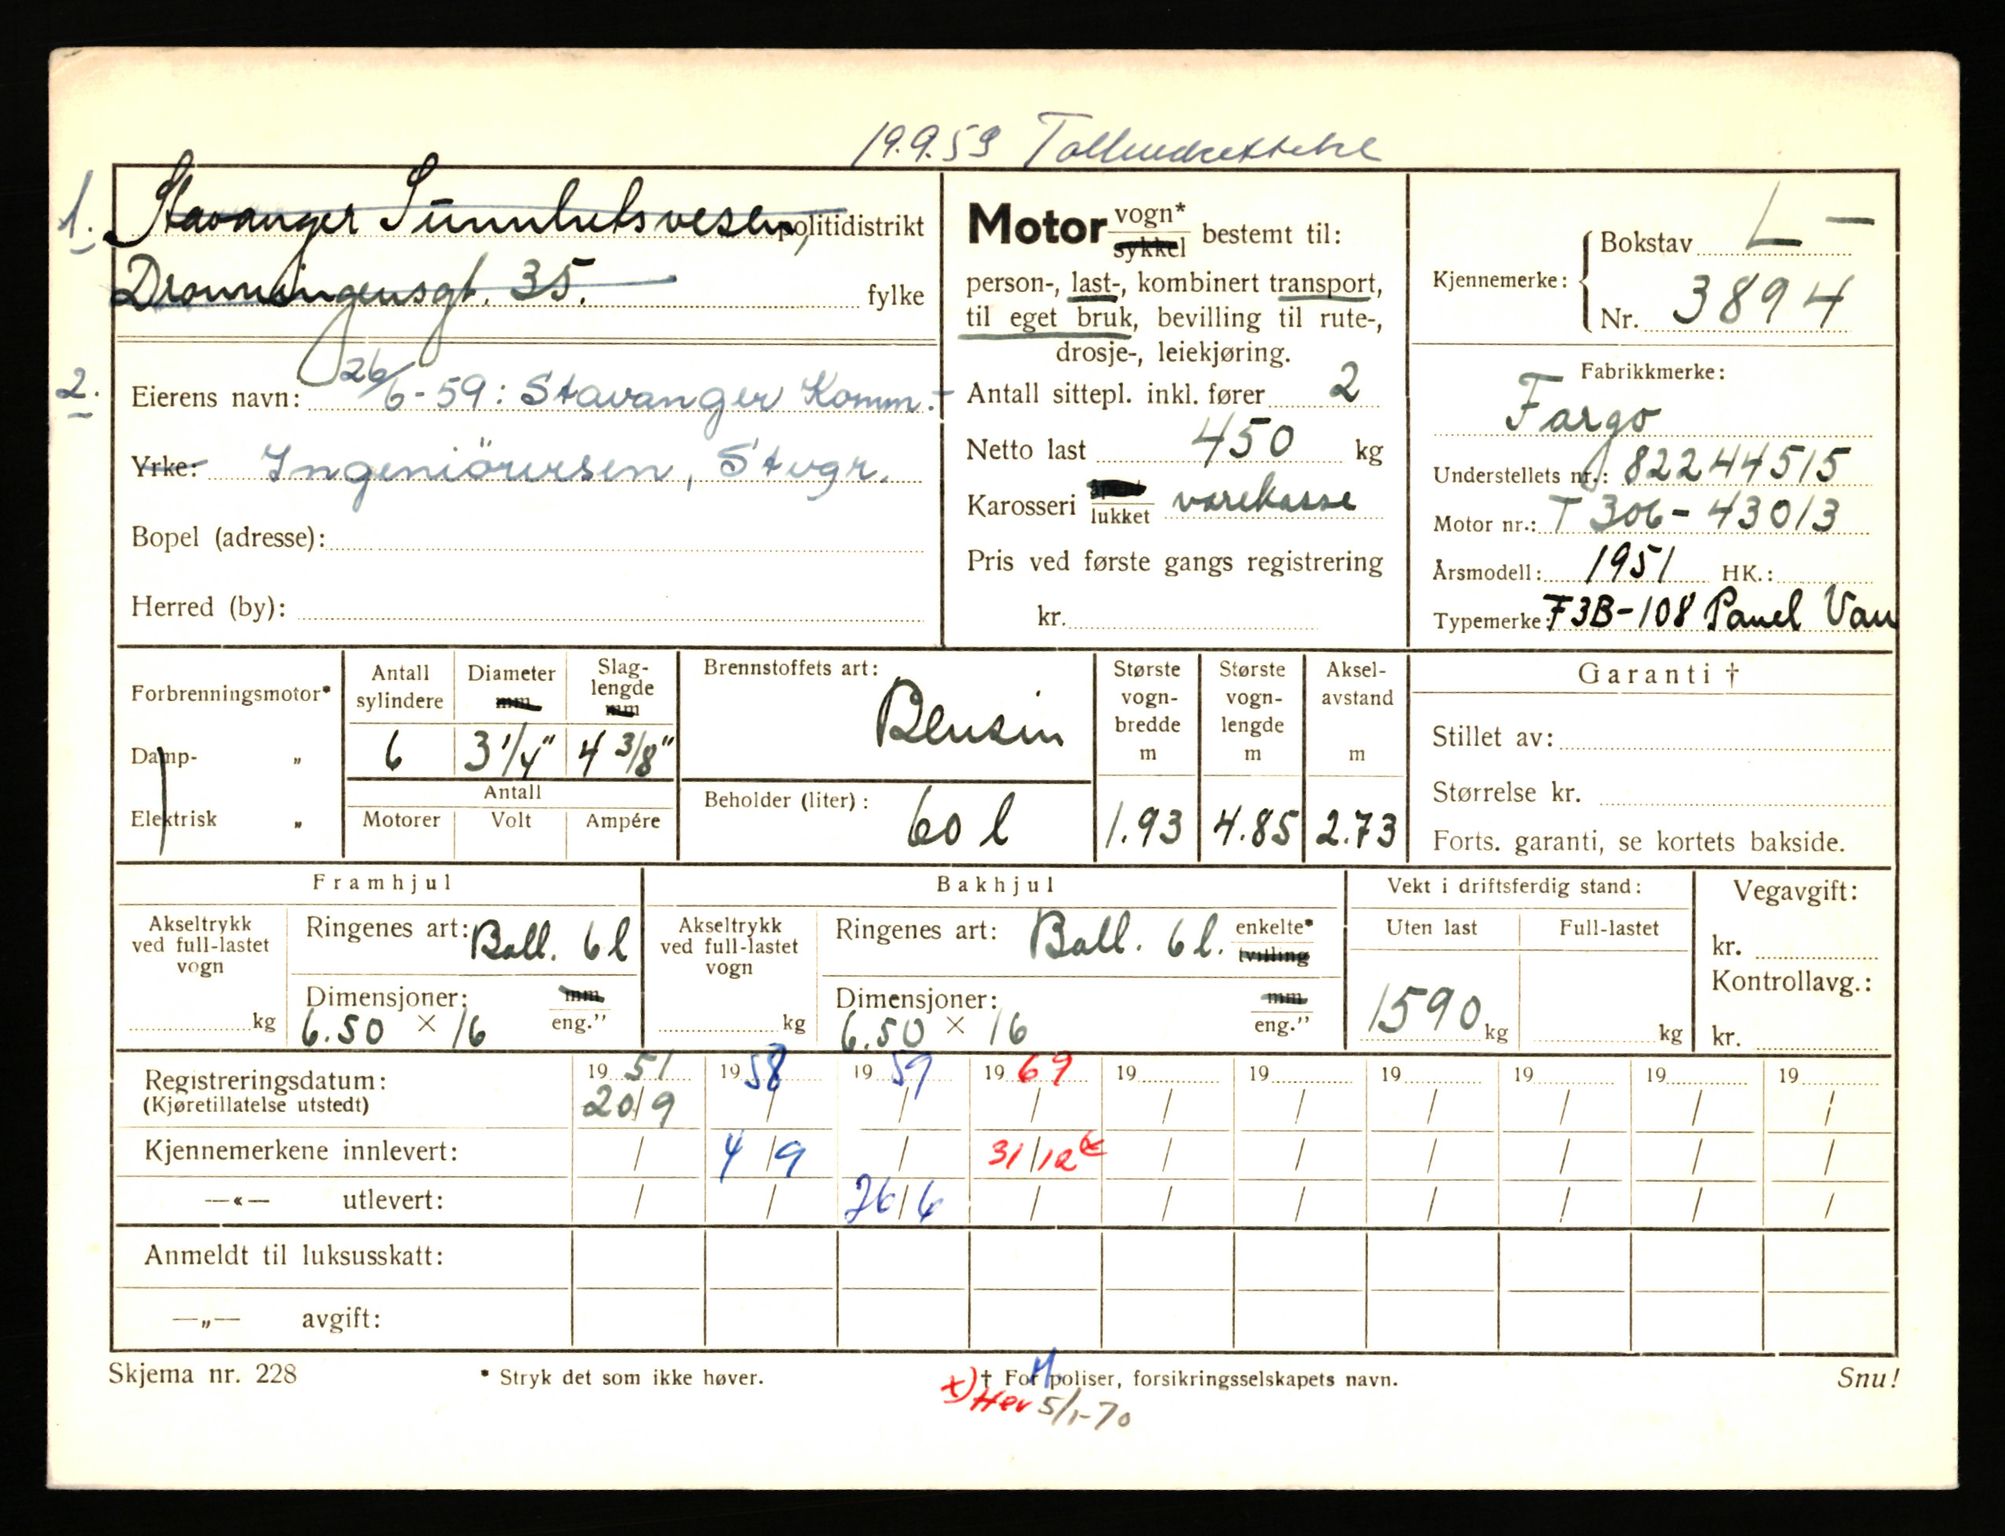 19.9.53
1. Stavanger Sunnhetsvesen, politidistrikt
Dronningensgt. 35. fylke
2. Eierens navn: 26/6-59: Stavanger Komm.-
Yrke: Ingeniörvesen, Stvgr.
Bopel (adresse):
Herred (by):
Motor vogn* sykkel bestemt til:
person-, last-, kombinert transport,
til eget bruk, bevilling til rute-,
drosje-, leiekjøring.
Antall sittepl. inkl. fører 2
Netto last 450 kg
Karosseri lukket varekasse
Pris ved første gangs registrering
kr.
Kjennemerke: Bokstav L-
Nr. 3894
Fabrikkmerke:
Fargo
Understellets nr.: 82244515
Motor nr.: T 306-43013
Årsmodell: 1951 HK.:
Typemerke: F3B-108 Panel Van
Forbrenningsmotor*
Damp- „
Elektrisk „
Antall sylindere
Diameter mm
Slaglengde mm
6 3 1/4" 4 3/8"
Antall
Motorer Volt Ampére
Brennstoffets art:
Bensin
Beholder (liter): 60 l
Største vognbredde m
1.93
Største vognlengde m
4.85
Akselavstand m
2.73
Garanti †
Stillet av:
Størrelse kr.
Forts. garanti, se kortets bakside.
Framhjul
Akseltrykk ved full-lastet vogn
kg
Ringenes art: Ball. 6 l
Dimensjoner: mm
6.50 × 16 eng."
Bakhjul
Akseltrykk ved full-lastet vogn
kg
Ringenes art: Ball. 6 l. enkelte* tvilling
Dimensjoner: mm
6.50 × 16 eng."
Vekt i driftsferdig stand:
Uten last Full-lastet
1590 kg kg
Vegavgift:
kr.
Kontrollavg.:
kr.
Registreringsdatum: 19 51 19 58 19 59 19 69 19 19 19 19 19 19
(Kjøretillatelse utstedt) 20/9 / / / / / / / / /
Kjennemerkene innlevert: / 4/9 / 31/12 / / / / / /
—«— utlevert: / / 26/6 / / / / / / /
Anmeldt til luksusskatt:
—„— avgift:
Skjema nr. 228 * Stryk det som ikke høver. † For poliser, forsikringsselskapets navn. Snu!
x) Her 5/1-70